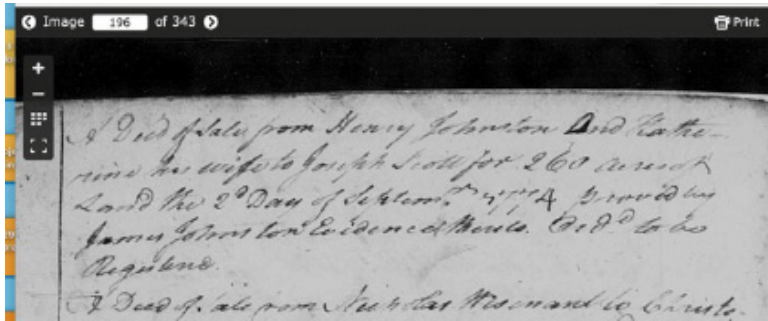 Image 196 of 343 Print
A Deed of Sale from Henry Johnston And Kathe-
rine his wife to Joseph Scott for 260 acres of
Land the 2d Day of Septemr 1774 proved by
James Johnston Evidence thereto. Ordd to be
A Deed of Sale from Nicholas Wisenand to Christo-